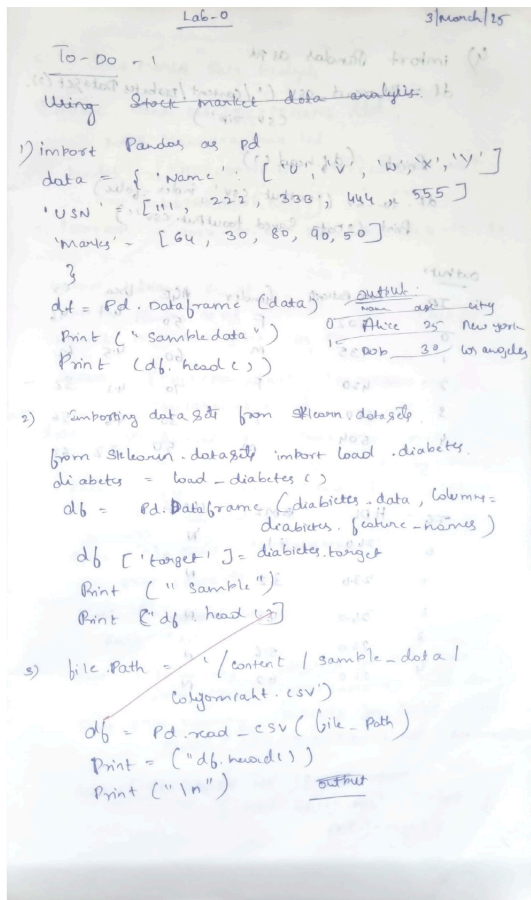 Lab-0
3/March/25
To-Do - 1
Using Stock market data analysis.
1) import Pandas as pd
data = { 'Name' : ['U', 'V', 'W', 'X', 'Y']
'USN' = [111, 222, 333, 444, 555]
'Marks' = [64, 30, 80, 90, 50]
}
df = Pd. Dataframe (data)
Print (" Sample data ")
Print (df. head ())
output:
Name age city
0 Alice 25 New york
1 Bob 30 los angeles
2) Importing data sets from sklearn. datasets
from sklearn. datasets import load . diabetes
diabetes = load - diabetes ()
df = Pd. Dataframe (diabictes. data, Columns=
diabictes. feature - names)
df ['target'] = diabictes. target
Print (" Sample ")
Print ["df. head ()]
3) file. Path = '/content / sample - data /
.csv')
df = Pd. read - csv (file - Path)
Print = ("df. head())
Print ("\n")
output